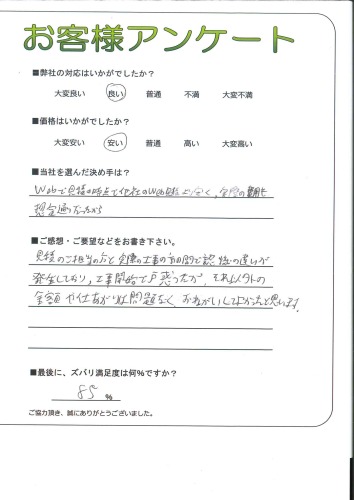 お客様アンケート
■弊社の対応はいかがでしたか？
大変良い 良い 普通 不満 大変不満
■価格はいかがでしたか？
大変安い 安い 普通 高い 大変高い
■当社を選んだ決め手は？
Webで見積の時点で他社のWeb見積より安く、実際の費用も
想定通りだったから
■ご感想・ご要望などをお書き下さい。
見積のご担当の方と実際の工事の方の間で認識の違いが
発生しており、工事開始で戸惑ったが、それ以外の
金額や仕上がりは問題なく、おねがいしてよかったと思います。
■最後に、ズバリ満足度は何%ですか？
85 %
ご協力頂き、誠にありがとうございました。